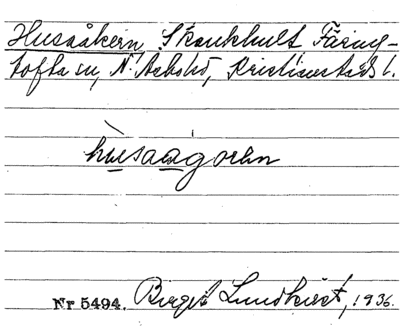 Husaåkern, Skånkhult Färing-
tofta sn, N. Åsbo hd, Kristianstads l.
husaagorhn
Nr 5494. Birgit Lundkvist, 1936.